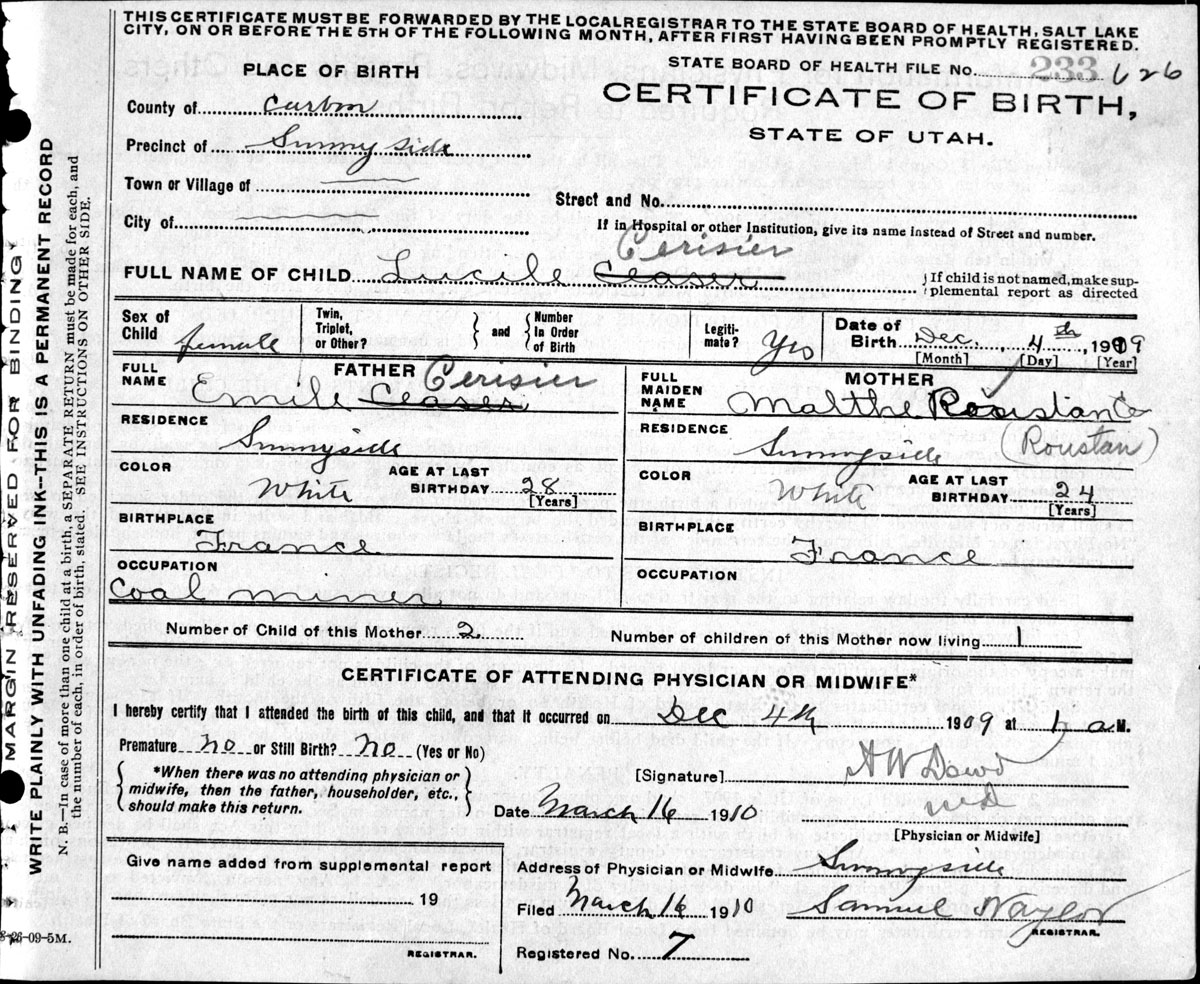 THIS CERTIFICATE MUST BE FORWARDED BY THE LOCAL REGISTRAR TO THE STATE BOARD OF HEALTH, SALT LAKE
CITY, ON OR BEFORE THE 5TH OF THE FOLLOWING MONTH, AFTER FIRST HAVING BEEN PROMPTLY REGISTERED.
PLACE OF BIRTH
STATE BOARD OF HEALTH FILE No. 233 626
CERTIFICATE OF BIRTH,
STATE OF UTAH.
County of Carbon
Precinct of Sunnyside
Town or Village of
Street and No.
City of
If in Hospital or other Institution, give its name instead of Street and number.
Cerisier
FULL NAME OF CHILD Lucile Ceaser
If child is not named, make sup-
plemental report as directed
Sex of Child female
Twin, Triplet, or Other?
and
Number In Order of Birth
Legiti-mate? Yes
Date of Birth Dec. 4th, 1909
[Month] [Day] [Year]
FATHER
FULL NAME Emile Ceaser Cerisier
RESIDENCE Sunnyside
COLOR White
AGE AT LAST BIRTHDAY 28
[Years]
BIRTHPLACE
France
OCCUPATION
Coal miner
MOTHER
FULL MAIDEN NAME Malthe Roustan
RESIDENCE Sunnyside (Roustan)
COLOR White
AGE AT LAST BIRTHDAY 24
[Years]
BIRTHPLACE
France
OCCUPATION
Number of Child of this Mother 2
Number of children of this Mother now living 1
CERTIFICATE OF ATTENDING PHYSICIAN OR MIDWIFE*
I hereby certify that I attended the birth of this child, and that it occurred on Dec 4th 1909 at a M.
Premature no or Still Birth? no (Yes or No)
*When there was no attending physician or
midwife, then the father, householder, etc.,
should make this return.
[Signature] A W Dowd
md
Date March 16 1910
[Physician or Midwife]
Give name added from supplemental report
19
REGISTRAR.
Address of Physician or Midwife Sunnyside
Filed March 16 1910 Samuel Naylor
REGISTRAR.
Registered No. 7
MARGIN RESERVED FOR BINDING
WRITE PLAINLY WITH UNFADING INK--THIS IS A PERMANENT RECORD
N. B.—In case of more than one child at a birth, a SEPARATE RETURN must be made for each, and
the number of each, in order of birth, stated. SEE INSTRUCTIONS ON OTHER SIDE.
-09-5M.